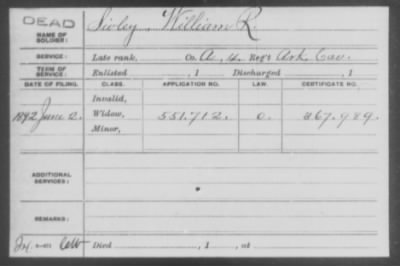 DEAD
NAME OF SOLDIER: Sivley, William R.
SERVICE: Late rank, Co. A, 4 Reg't Ark Cav.
TERM OF SERVICE: Enlisted , 1 Discharged , 1
DATE OF FILING. CLASS. APPLICATION NO. LAW. CERTIFICATE NO.
Invalid,
1892 June 12. Widow, 551.712. O. 367.989.
Minor,
ADDITIONAL SERVICES:
REMARKS:
Died , 1 , at